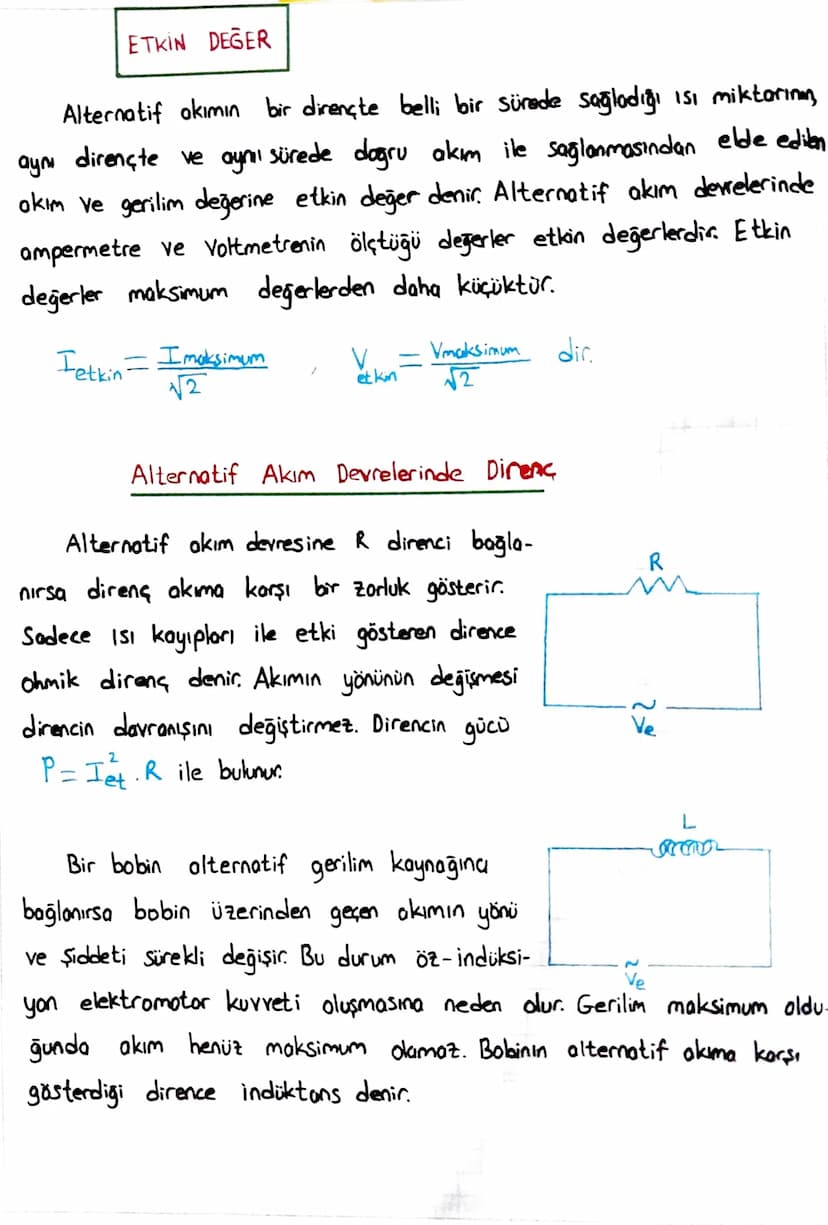 ETKİN DEĞER
Alternatif akımın bir dirençte belli bir sürede sağladığı ısı miktarının,
aynı dirençte ve aynı sürede doğru akım ile sağlanmasından elde edilen
akım ve gerilim değerine etkin değer denir. Alternatif akım devrelerinde
ampermetre ve Voltmetrenin ölçtüğü değerler etkin değerlerdir. Etkin
değerler maksimum değerlerden daha küçüktür.
I etkin = I maksimum / √2 , V etkin = Vmaksimum / √2 dir.
Alternatif Akım Devrelerinde Direnç
Alternatif akım devresine R direnci bağla-
nırsa direnç akıma karşı bir zorluk gösterir.
Sadece ısı kayıpları ile etki gösteren dirence
ohmik direnç denir. Akımın yönünün değişmesi
direncin davranışını değiştirmez. Direncin gücü
P = I²et . R ile bulunur.
R
Ve
Bir bobin alternatif gerilim kaynağına
bağlanırsa bobin üzerinden geçen akımın yönü
ve şiddeti sürekli değişir. Bu durum öz-indüksi-
yon elektromotor kuvveti oluşmasına neden olur. Gerilim maksimum oldu-
ğunda akım henüz maksimum olamaz. Bobinin alternatif akıma karşı
gösterdiği dirence indüktans denir.
L
Ve